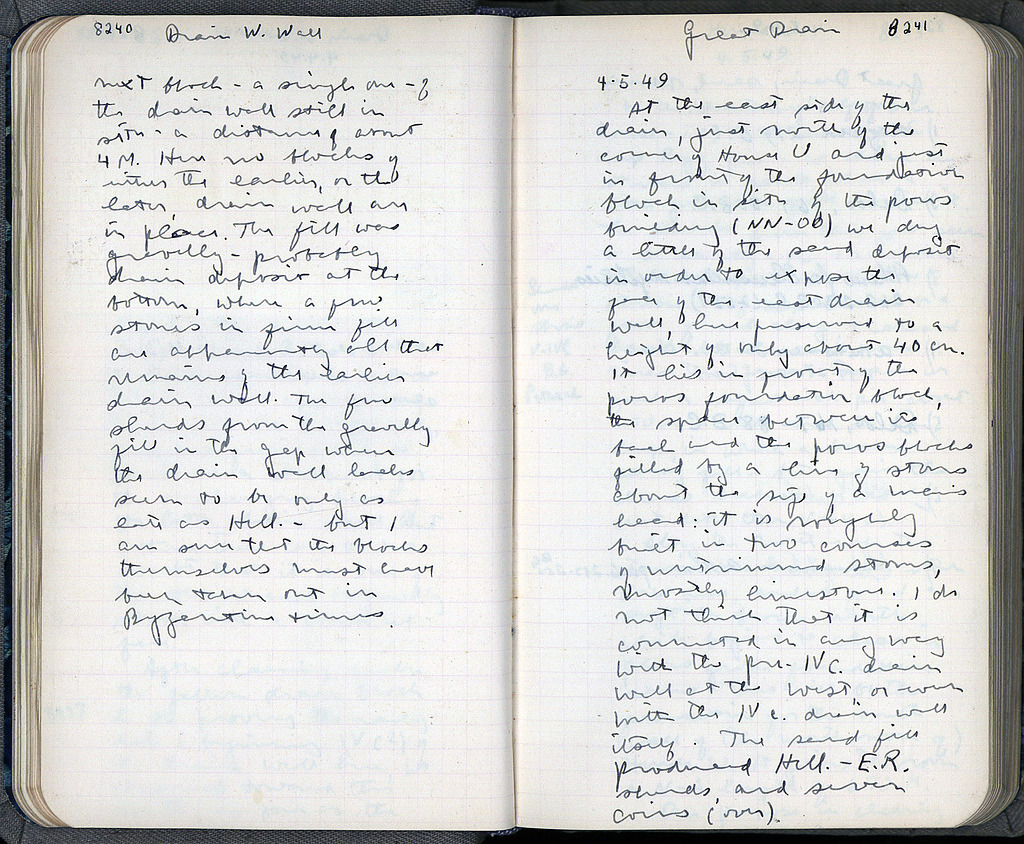 8240 Drain W. Wall
next block - a single one - of
the drain wall still in
situ - a distance of about
4 M. Here no blocks of
either the earlier, or the
later, drain wall are
in place. The fill was
gravelly - probably
drain deposit at the
bottom, where a few
stones in firm fill
are apparently all that
remains of the earlier
drain wall. The few
sherds from the gravelly
fill in the gap where
the drain wall lacks
seem to be only as
late as Hell. - but I
am sure that the blocks
themselves must have
been taken out in
Byzantine times.
Great Drain 8241
4.5.49
At the east side of the
drain, just north of the
corner of House U and just
in front of the foundation
block in situ of the poros
building (NN-OO) we dug
a little of the sand deposit
in order to expose the
face of the east drain
wall, here preserved to a
height of only about 40 cm.
It lies in front of the
poros foundation block,
the space between its
back and the poros blocks
filled by a line of stones
about the size of a man's
head: it is roughly
built in two courses
of untrimmed stones,
mostly limestone. I do
not think that it is
connected in any way
with the pre-IVc. drain
wall at the west or even
with the IV c. drain wall
itself. The sand fill
produced Hell. - E.R.
sherds, and seven
coins (over).